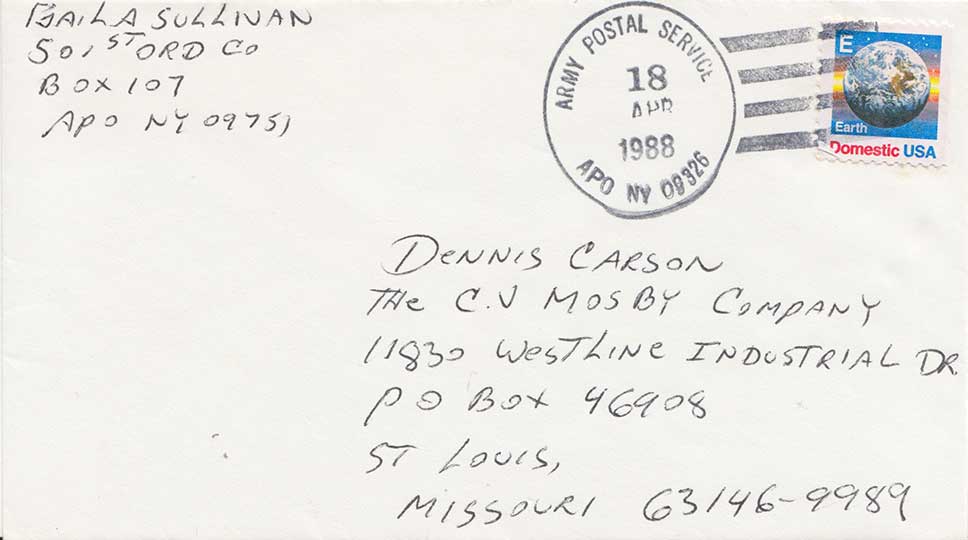 GAIL A SULLIVAN
501ST ORD CO
BOX 107
APO NY 09751
ARMY POSTAL SERVICE
18
APR
1988
APO NY 09326
E
Earth
Domestic USA
DENNIS CARSON
THE C.V MOSBY COMPANY
11830 WESTLINE INDUSTRIAL DR.
PO BOX 46908
ST LOUIS,
MISSOURI 63146-9989